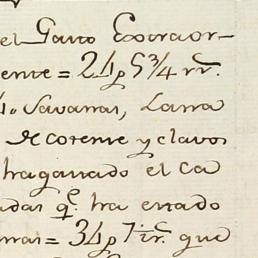 el Gasto Extraor-
ente = 24 p 5 3/4 rr.
Savanas, Lana
de corente y clavos
haganado el ca
adas q.e ha estado
= 34 p 7 rr. que